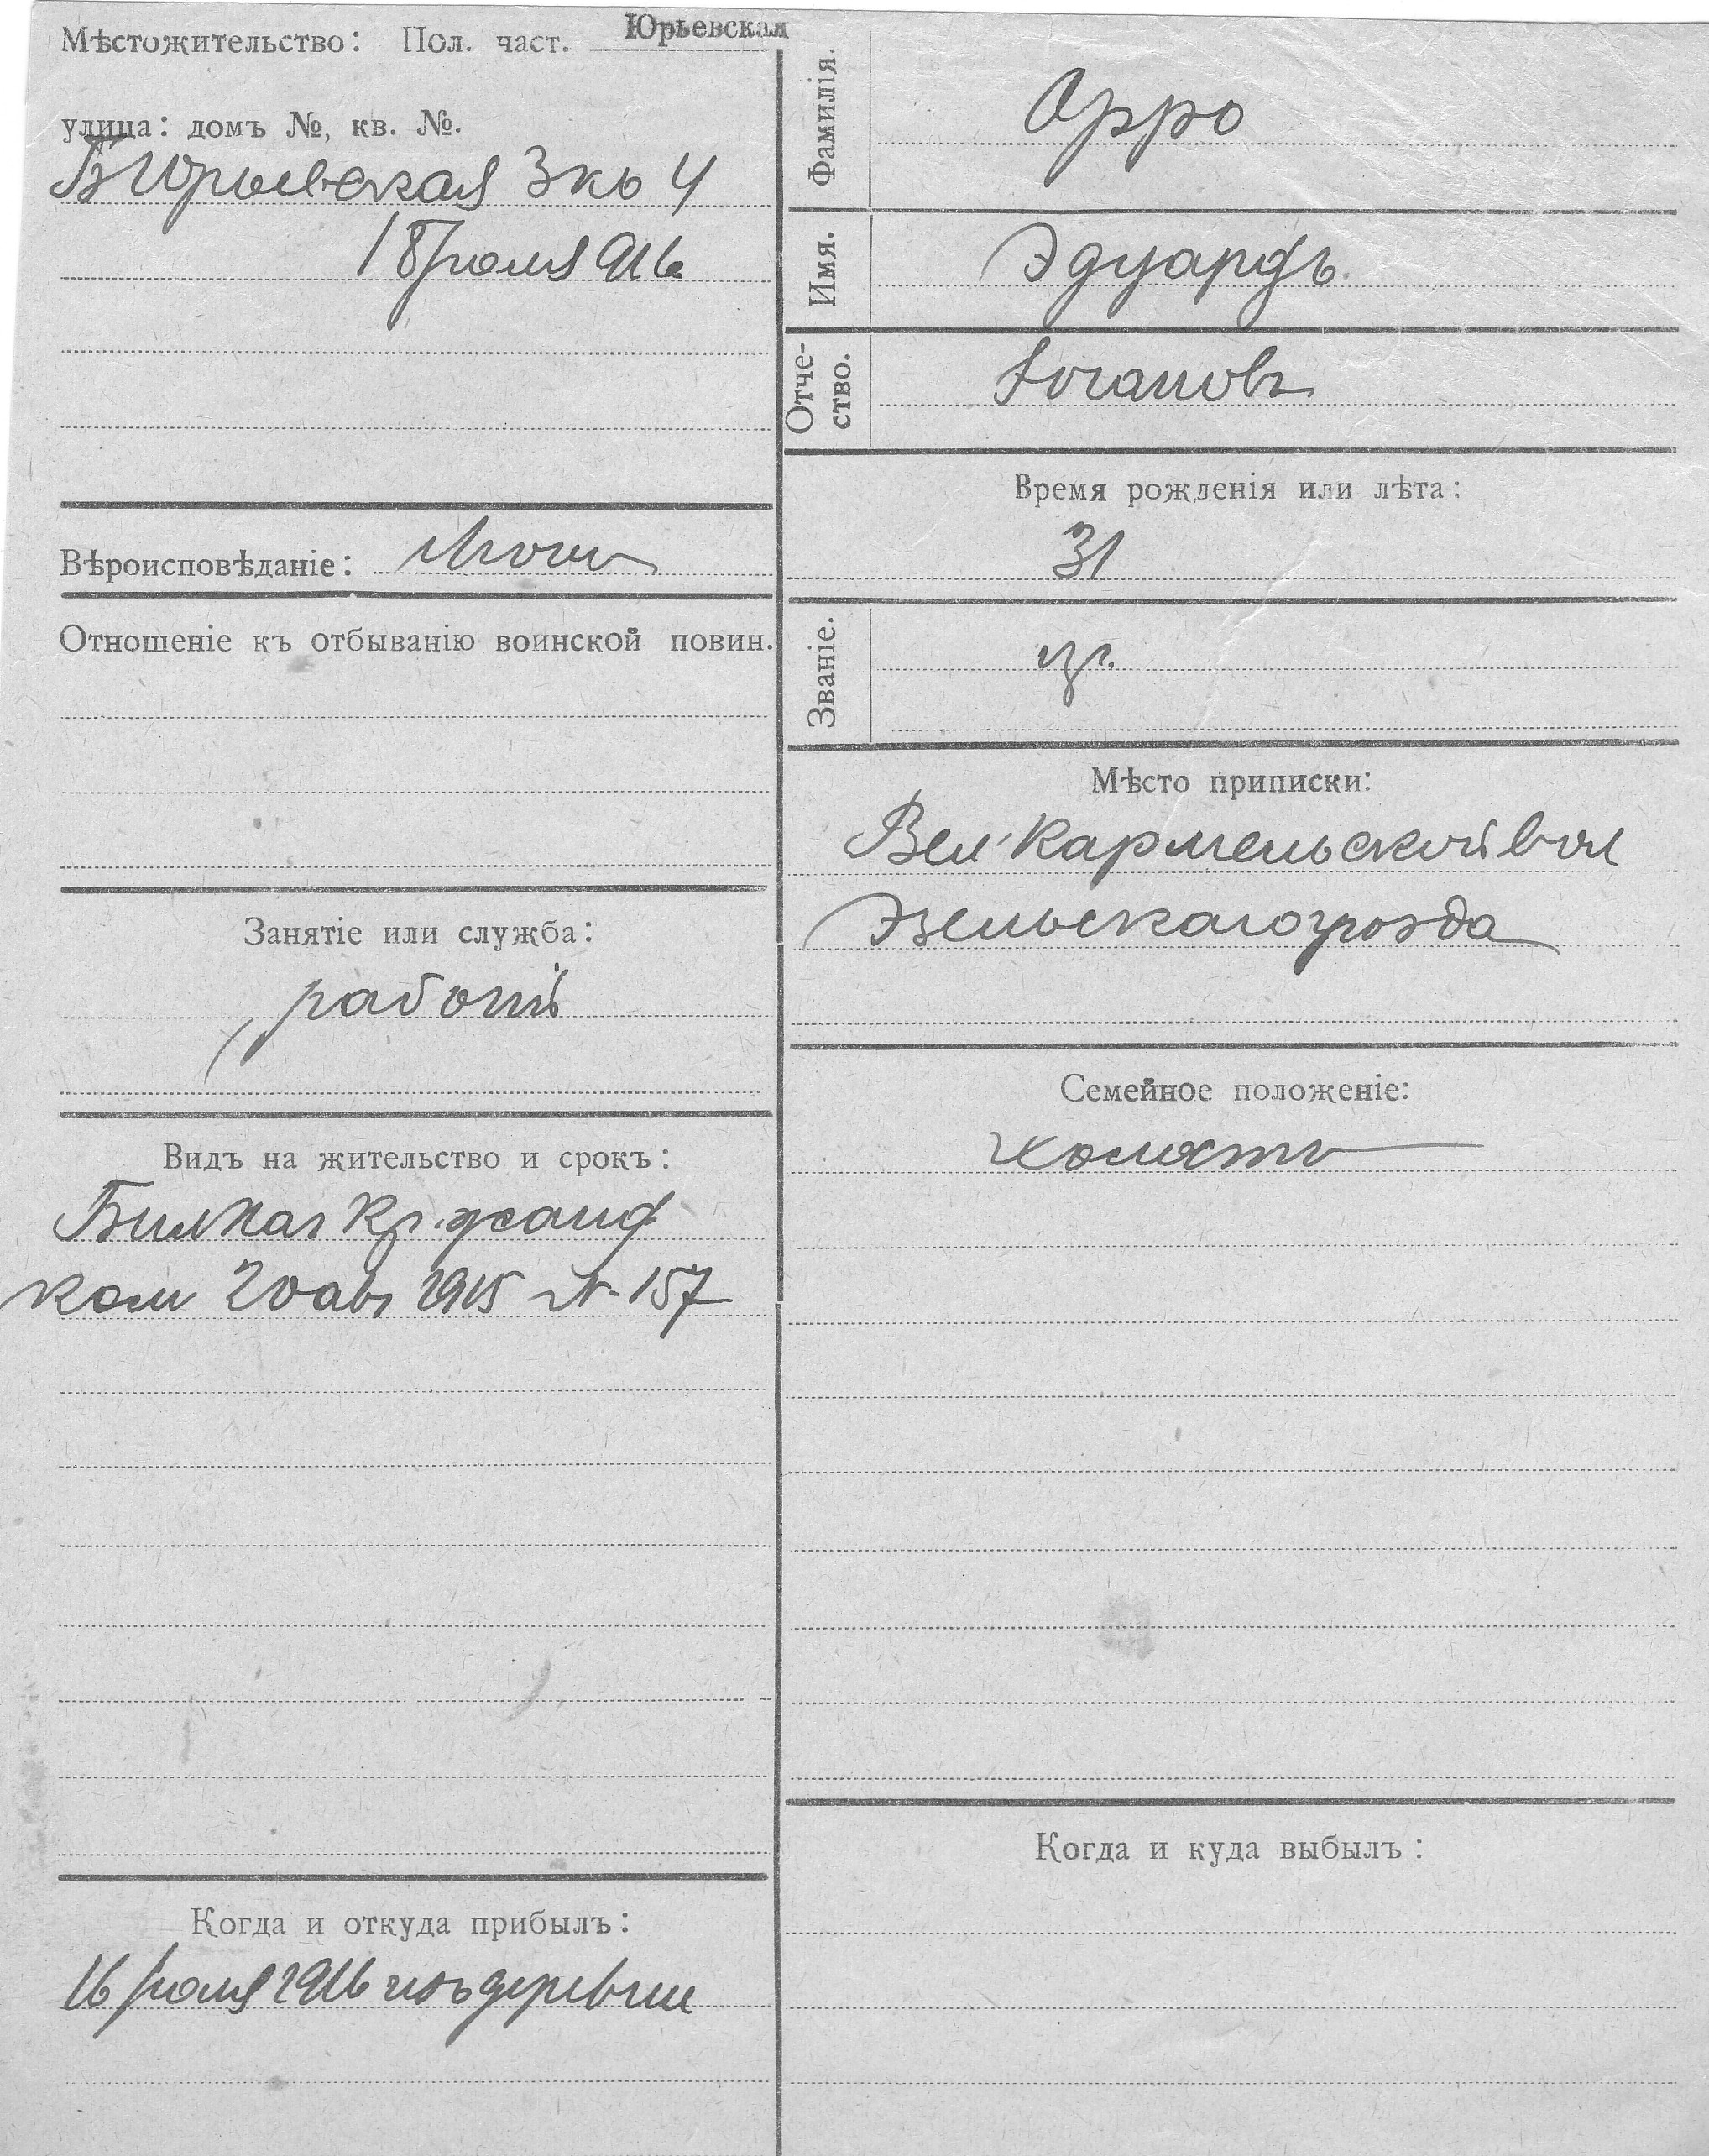 Мѣстожительство: Пол. част. Юрьевская
улица: домъ №, кв. №.
Б Юрьевская 3 кв 4
18 Июля 916
Вѣроисповѣданіе: Лют
Отношеніе къ отбыванію воинской повин.
Занятіе или служба:
рабочій
Видъ на жительство и срокъ:
Бил Наг Кр.
ком 20 авг 1915 № 157
Когда и откуда прибылъ:
16 Июля 1916 изъ деревни
Фамилія.
Орро
Имя.
Эдуардъ
Отче-
ство.
Іогановъ
Время рожденія или лѣта:
31
Званіе.
кр.
Мѣсто приписки:
Вел Кармельской вол
Эзельскаго уѣзда
Семейное положеніе:
холостъ
Когда и куда выбылъ: